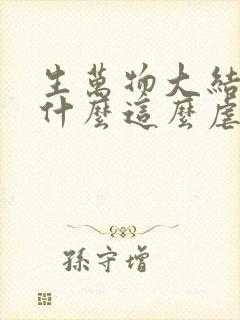 生萬物大結
什麼這麼虐
孫守增